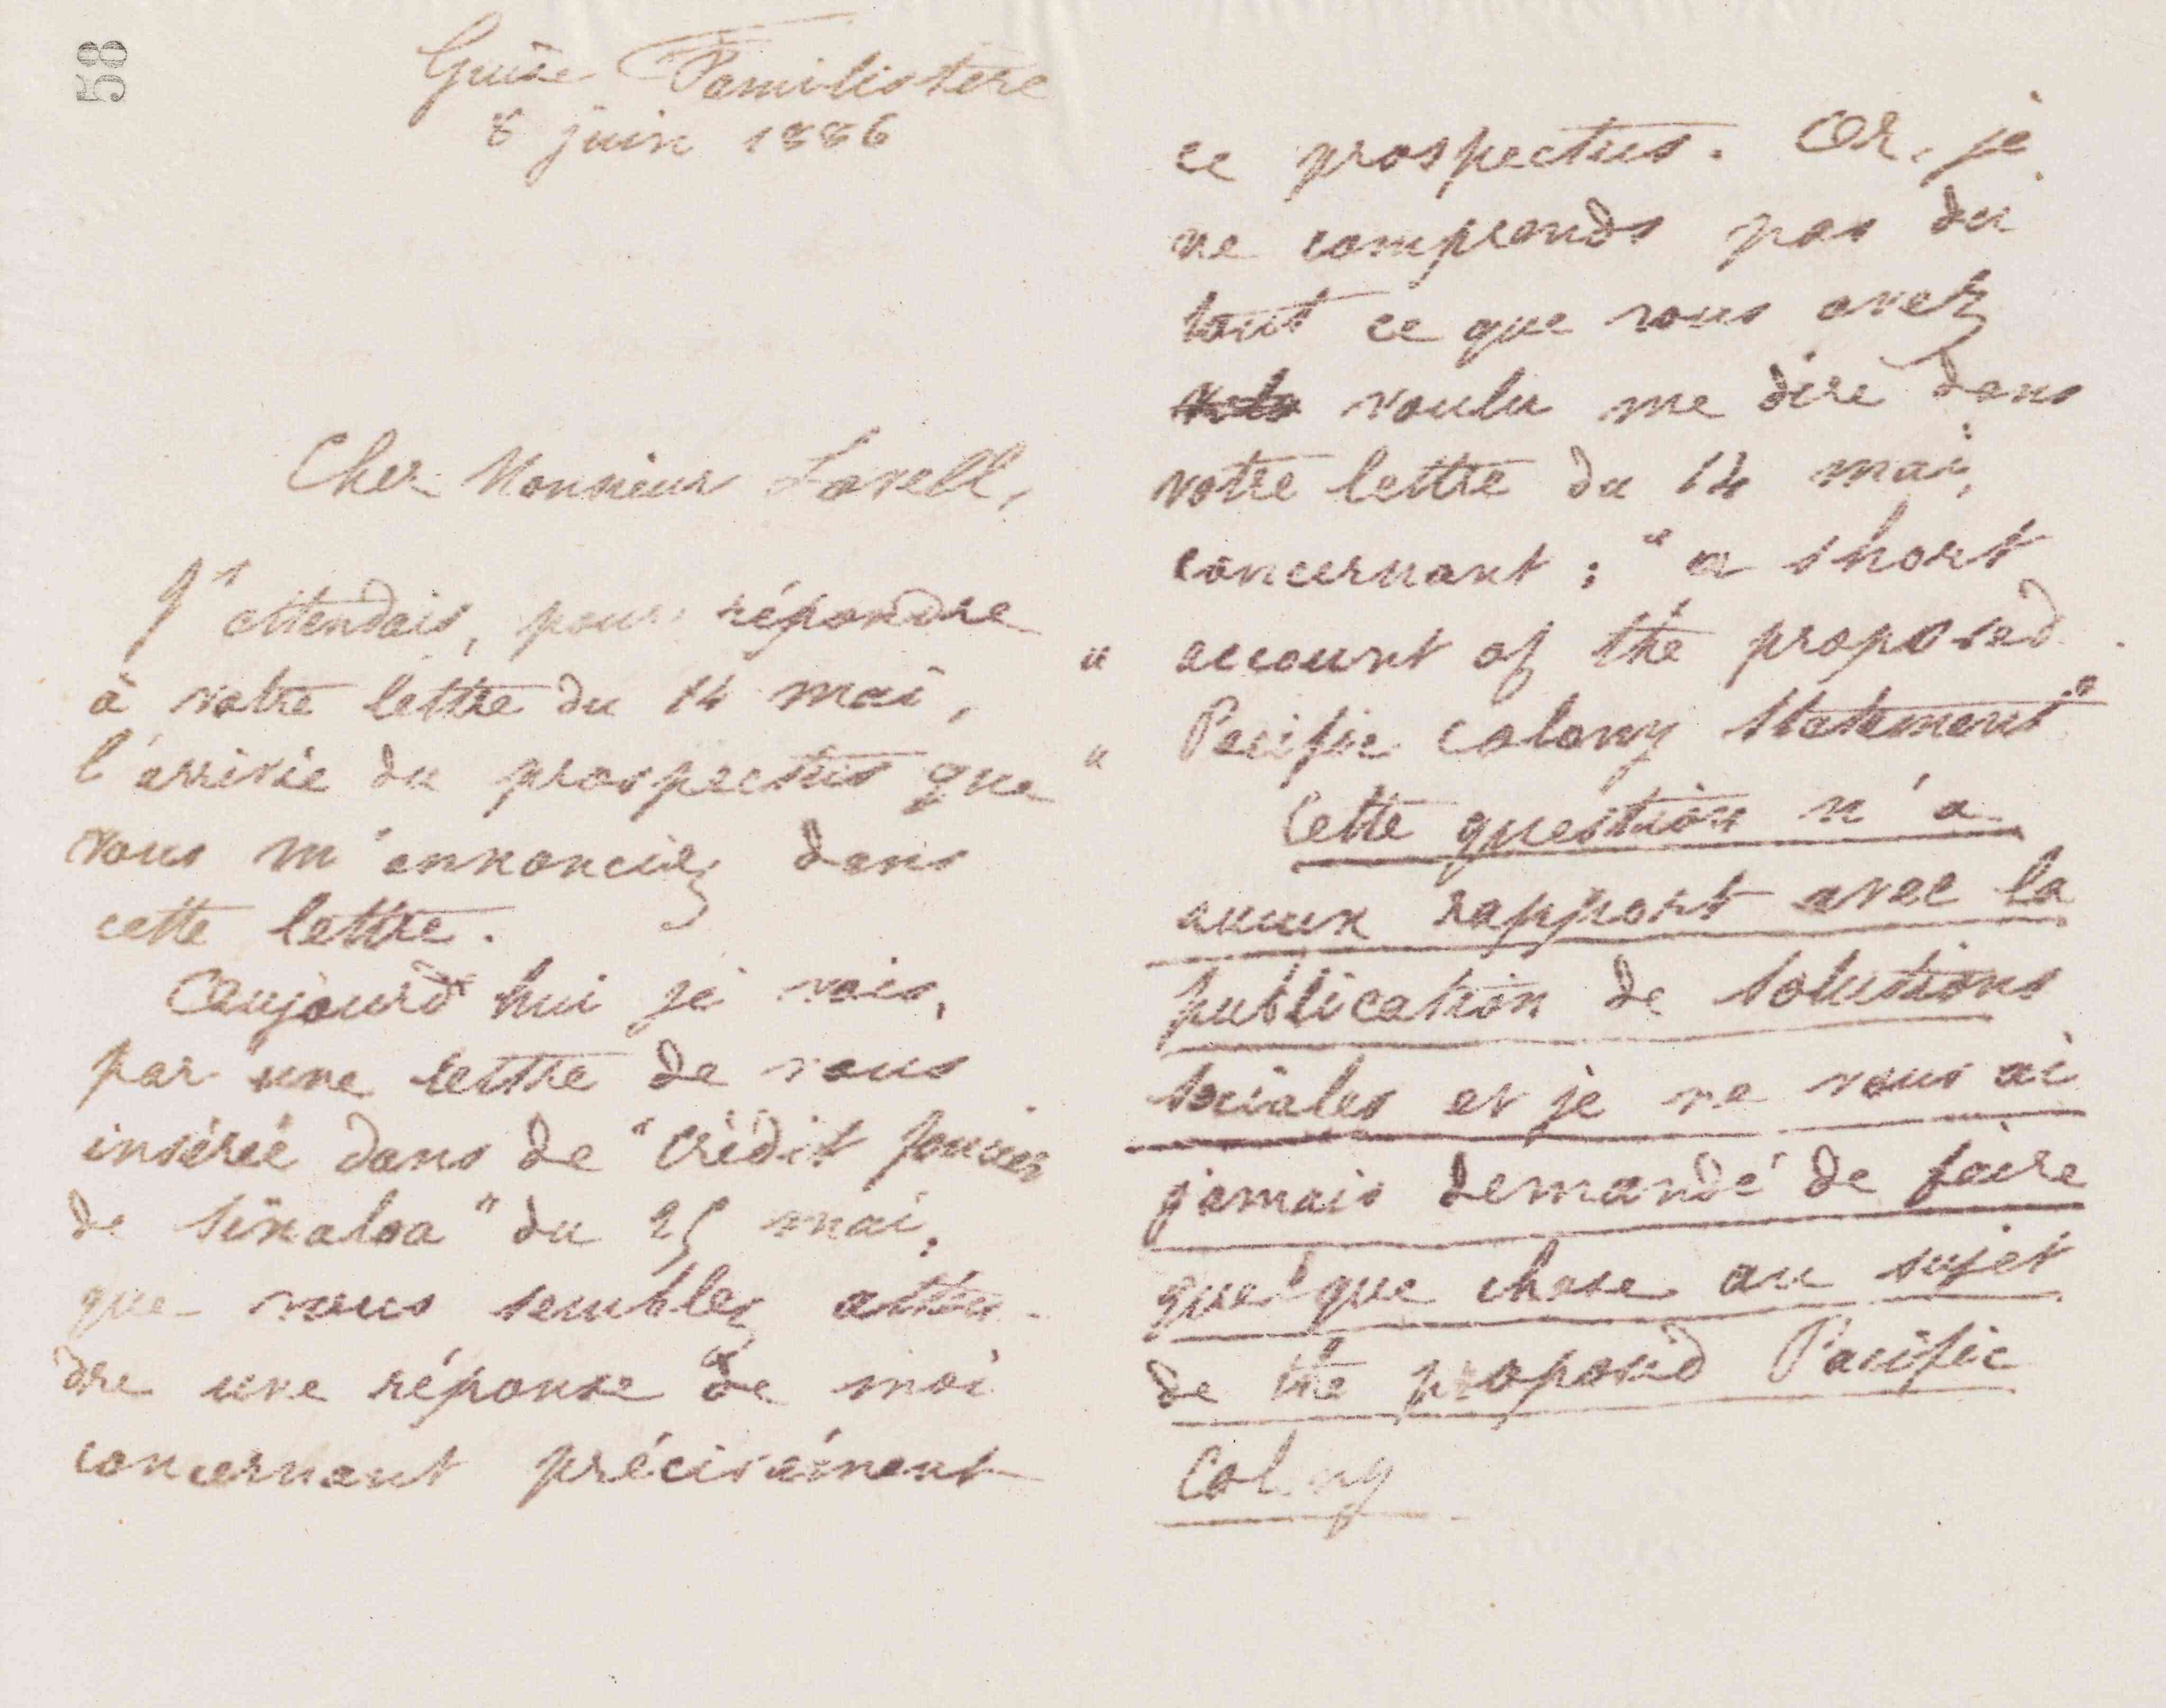 58
Guise Familistère
8 juin 1886
Cher Monsieur Lovell,
J'attendais, pour répondre
à votre lettre du 14 mai,
l'arrivée du prospectus que
vous m'annonciez dans
cette lettre.
Aujourd'hui je vois,
par une lettre de vous
insérée dans de "Crédit foncier
de Sinaloa" du 25 mai,
que vous semblez atten-
dre une réponse de moi
concernant précisément
ce prospectus. Or, je
ne comprends pas du
tout ce que vous avez
voulu me dire dans
votre lettre du 14 mai,
concernant : "a short
" account of the proposed
" Pacific colony Statement"
Cette question n'a
aucun rapport avec la
publication de Solutions
Sociales et je ne vous ai
jamais demandé de faire
quelque chose au sujet
de the proposed Pacific
Colony